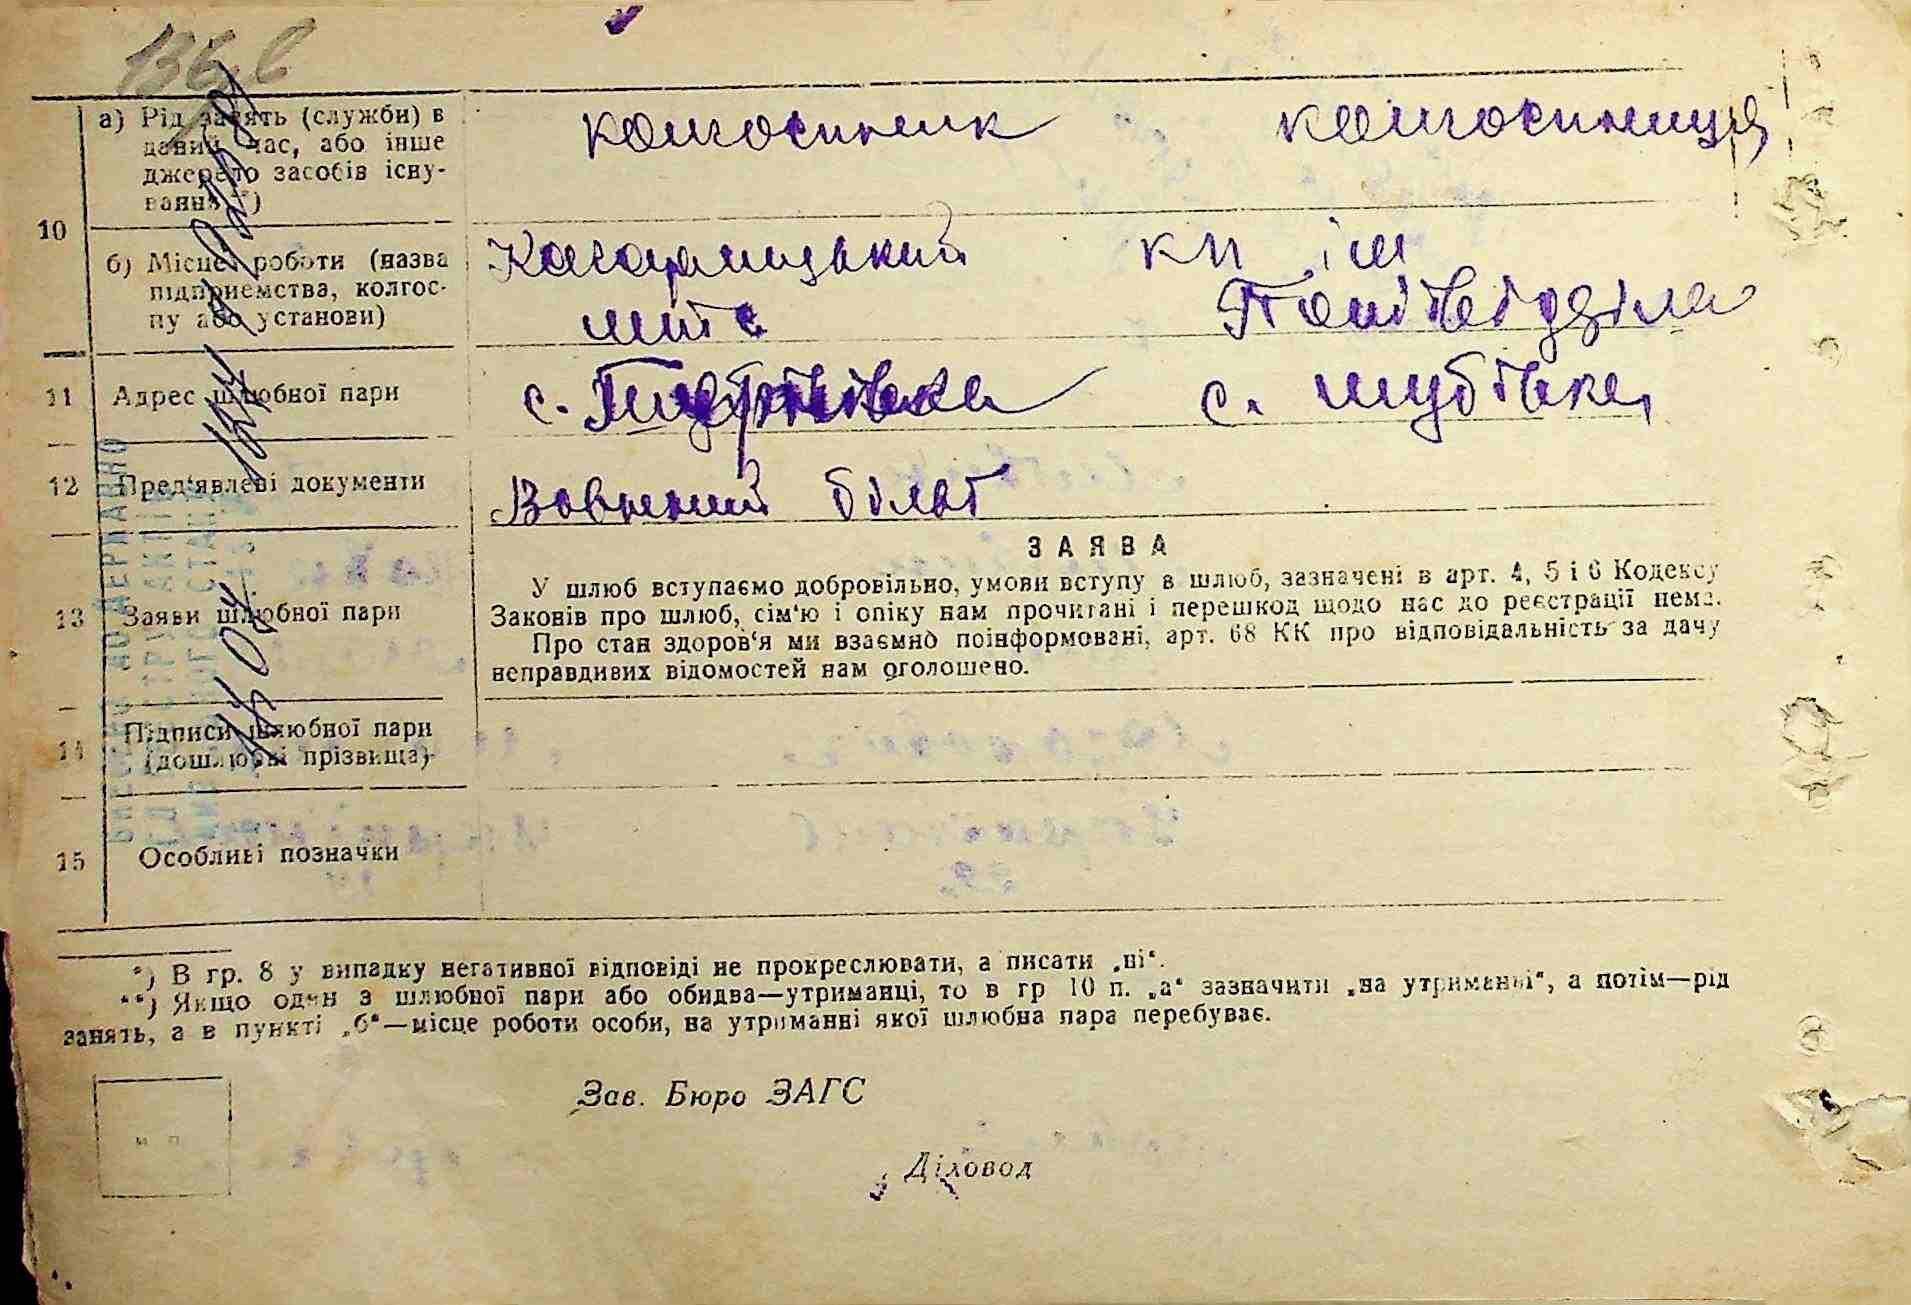 136
а) Рід занять (служби) в колгоспник колгоспниця
даний час, або інше
джерело засобів існу-
вання **)
10
б) Місце роботи (назва Кагарлицький кп ім
підприємства, колгос- мтс Політвідділа
пу або установи)
11 Адрес шлюбної пари с. с. Шубівка
12 Пред'явлені документи Воєнний білет
ЗАЯВА
13 Заяви шлюбної пари
У шлюб вступаємо добровільно, умови вступу в шлюб, зазначені в арт. 4, 5 і 6 Кодексу
Законів про шлюб, сім'ю і опіку нам прочитані і перешкод щодо нас до реєстрації нема.
Про стан здоров'я ми взаємно поінформовані, арт. 68 КК про відповідальність за дачу
неправдивих відомостей нам оголошено.
14 Підписи шлюбної пари
(дошлюбні прізвища)
15 Особливі позначки
*) В гр. 8 у випадку негативної відповіді не прокреслювати, а писати „ні“.
**) Якщо один з шлюбної пари або обидва—утриманці, то в гр 10 п. „а“ зазначити „на утриманні“, а потім—рід
занять, а в пункті „б“—місце роботи особи, на утриманні якої шлюбна пара перебуває.
Зав. Бюро ЗАГС
м п
Діловод